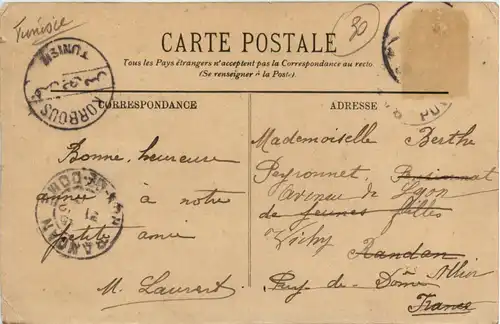 Tunisie
30
CARTE POSTALE
Tous les Pays étrangers n'acceptent pas la Correspondance au recto
(Se renseigner à la Poste)
KORBOUS
TUNISIE
CORRESPONDANCE
Bonne heureuse
année à notre
petite amie
M. Laurent
RANDAN
PUY-DE-DOME
ADRESSE
Mademoiselle Berthe
Peyronnet, Pensionnat
avenue de Lyon
de jeunes filles
Vichy
Randan
Allier
Puy-de-Dôme
France